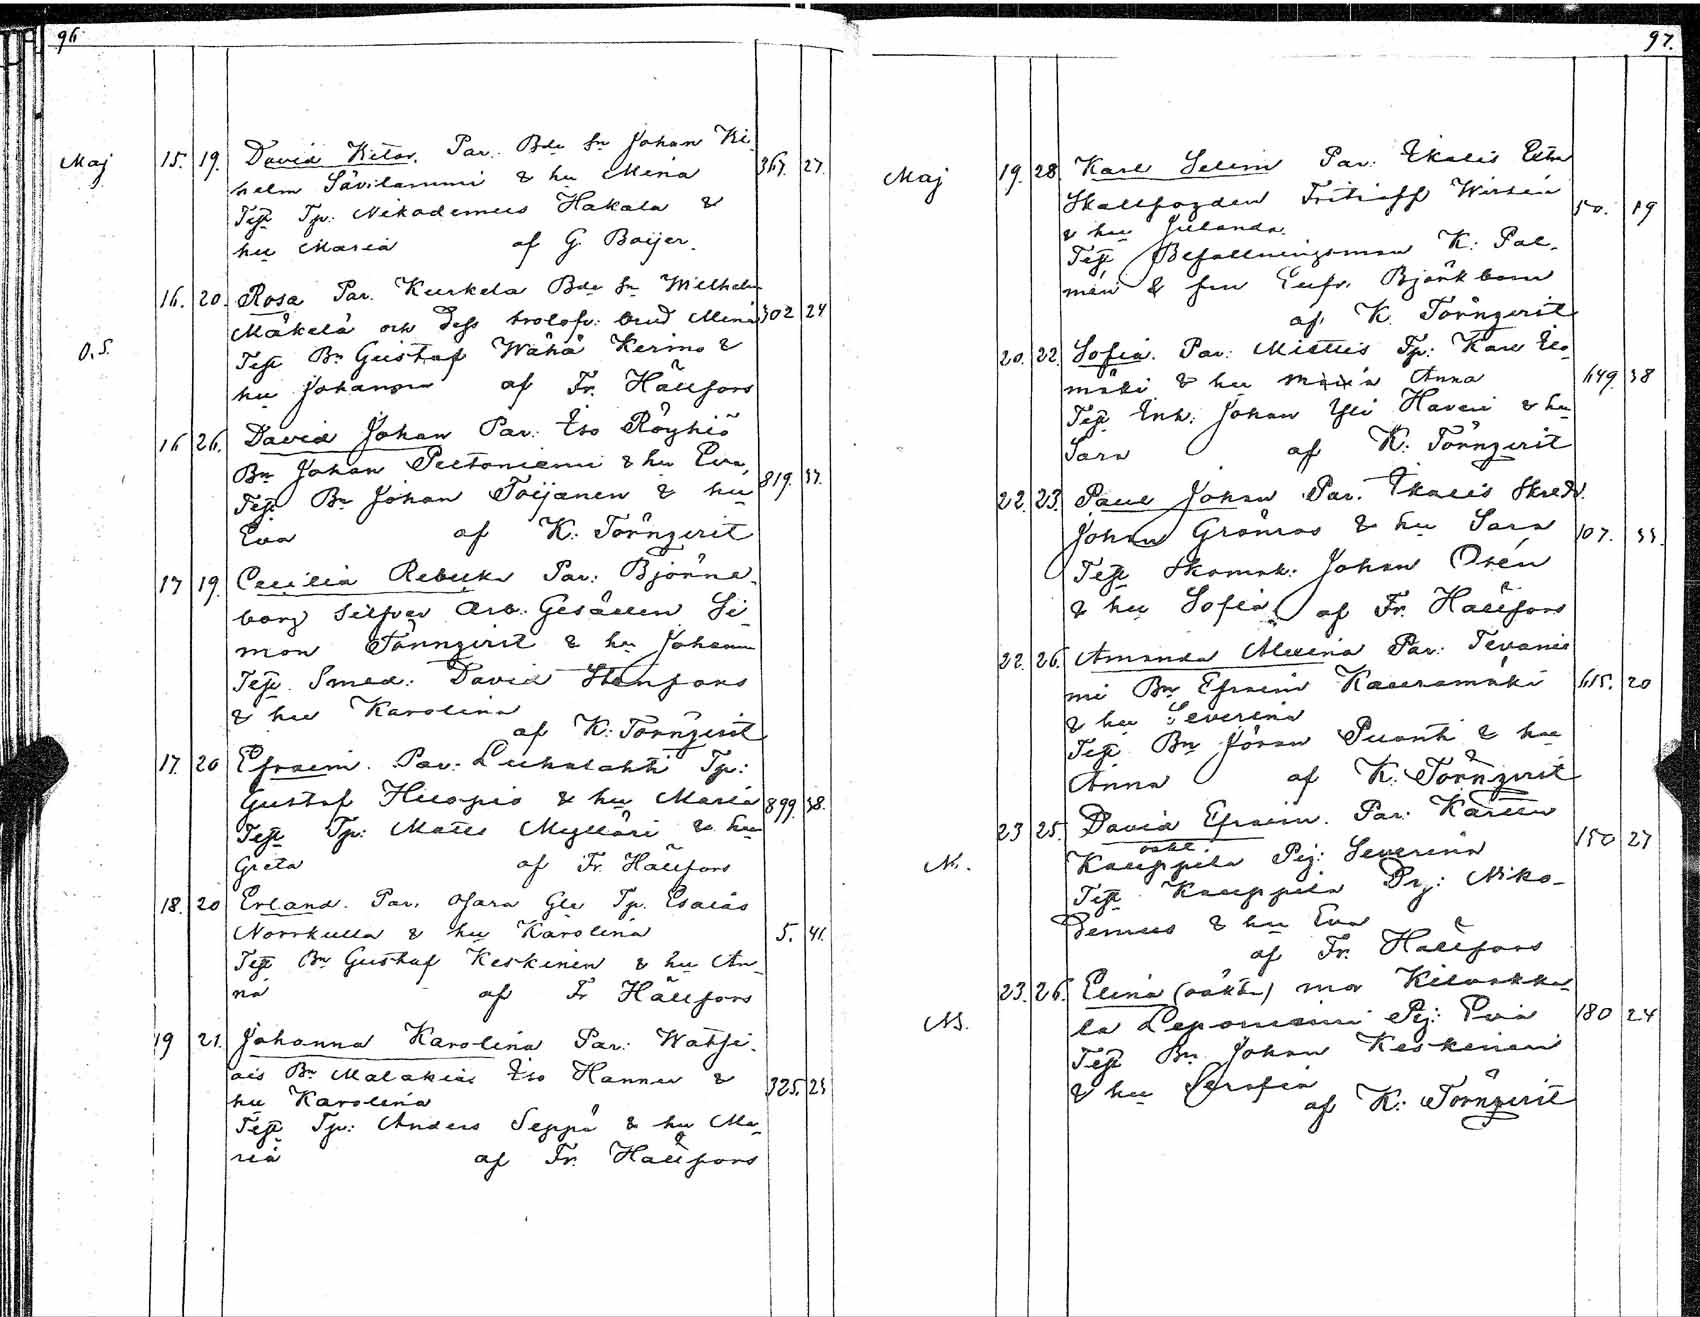 96
Maj 15. 19. David Kitos. Par. Bde Sn Johan Wil-
helm Sävilammi & hu Mina 367. 27.
Test Tp: Nikodemus Hakala &
hu Maria af G. Boijer.
16. 20. Rosa Par. Kurkela Bde Sn Wilhelm
O.S. Mäkelä och dess trolofv: brud Mina 302 24
Test Bn Gustaf Wähä Kerino &
hu Johanna af Fr. Hällfors
16 26. David Johan Par: Iso Röyhiö
Bn Johan Peltoniemi & hu Eva, 819. 37.
Test Bn Johan Toijanen & hu
Eva af K: Törnqvist
17 19. Cecilia Rebecka Par: Björne-
borg Silfver Arb: Gesällen Si-
mon Törnqvist & hu Johanna
Test Smed: David Stenfors
& hu Karolina
af K: Törnqvist
17. 20 Efraim. Par: Luhalahti Tp:
Gustaf Huopio & hu Maria 899. 38.
Test Tp: Matts Mylläri & hu
Greta af Fr. Hällfors
18. 20 Erland. Par. Osara Gle Tp. Esaias
Norrkulla & hu Karolina 5. 41.
Test Bn Gustaf Keskinen & hu An-
na af Fr Hällfors
19 21. Johanna Karolina Par: Watsi-
ais Bn Malakias Iso Hannu & 325. 23
hu Karolina
Test Tp: Anders Seppä & hu Ma-
ria af Fr. Hällfors
97.
Maj 19. 28. Karl Selim Par: Ikalis Extra
Skallfogden Fritioff Wirsén 50. 19
& hu Julanda.
Test Befallningsman K: Pal-
mén & fru Eufr. Björkbom
af K. Törnqvist
20. 22. Sofia. Par: Miettis Tp: Karl Ilo-
mäki & hu Anna 649. 38
Test Inh: Johan Yli Haveri & hu
Sara af K: Törnqvist
22. 23. Paul Johan Par. Ikalis Skredd.
Johan Granroos & hu Sara 107. 33.
Test Skomak: Johan Osén
& hu Sofia af Fr. Hällfors
22. 26. Amanda Alvina Par: Tevanie
mi Bn Efraim Kauramäki 615. 20
& hu Severina
Test Bn Jöran Puonti & hu
Anna af K: Törnqvist
23 25. David Efraim. Par: Karttu
N. Kauppila oäkt. Pig: Severina 150 27
Test Kauppila Drg: Niko-
demus & hu Eva
af Fr. Hällfors
23. 26. Elina (oäkta) mor Kilvakka-
N. la Leponiemi Pig: Eva 180 24
Test Bn. Johan Keskinen
& hu Serafia
af K: Törnqvist